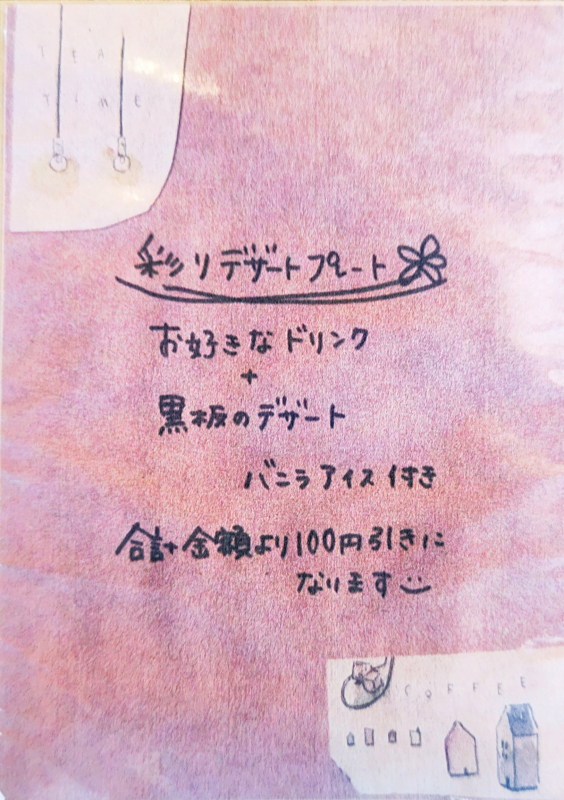 TEA
TIME
彩りデザートプレート
お好きなドリンク
+
黒板のデザート
バニラアイス付き
合計金額より100円引きに
なります
COFFEE